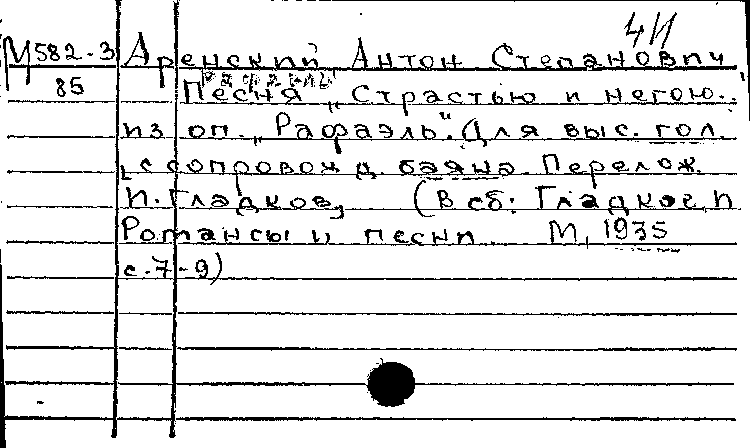 4И
М582-3 Аренский Антон Степанович
85
Рафаэль
Песня „Страстью и негою.."
из оп. „Рафаэль". Для выс. гол.
с сопровожд. баяна. Перелож.
П. Гладков, (В сб: Гладков, П
Романсы и песни. М, 1935
с.7-9)